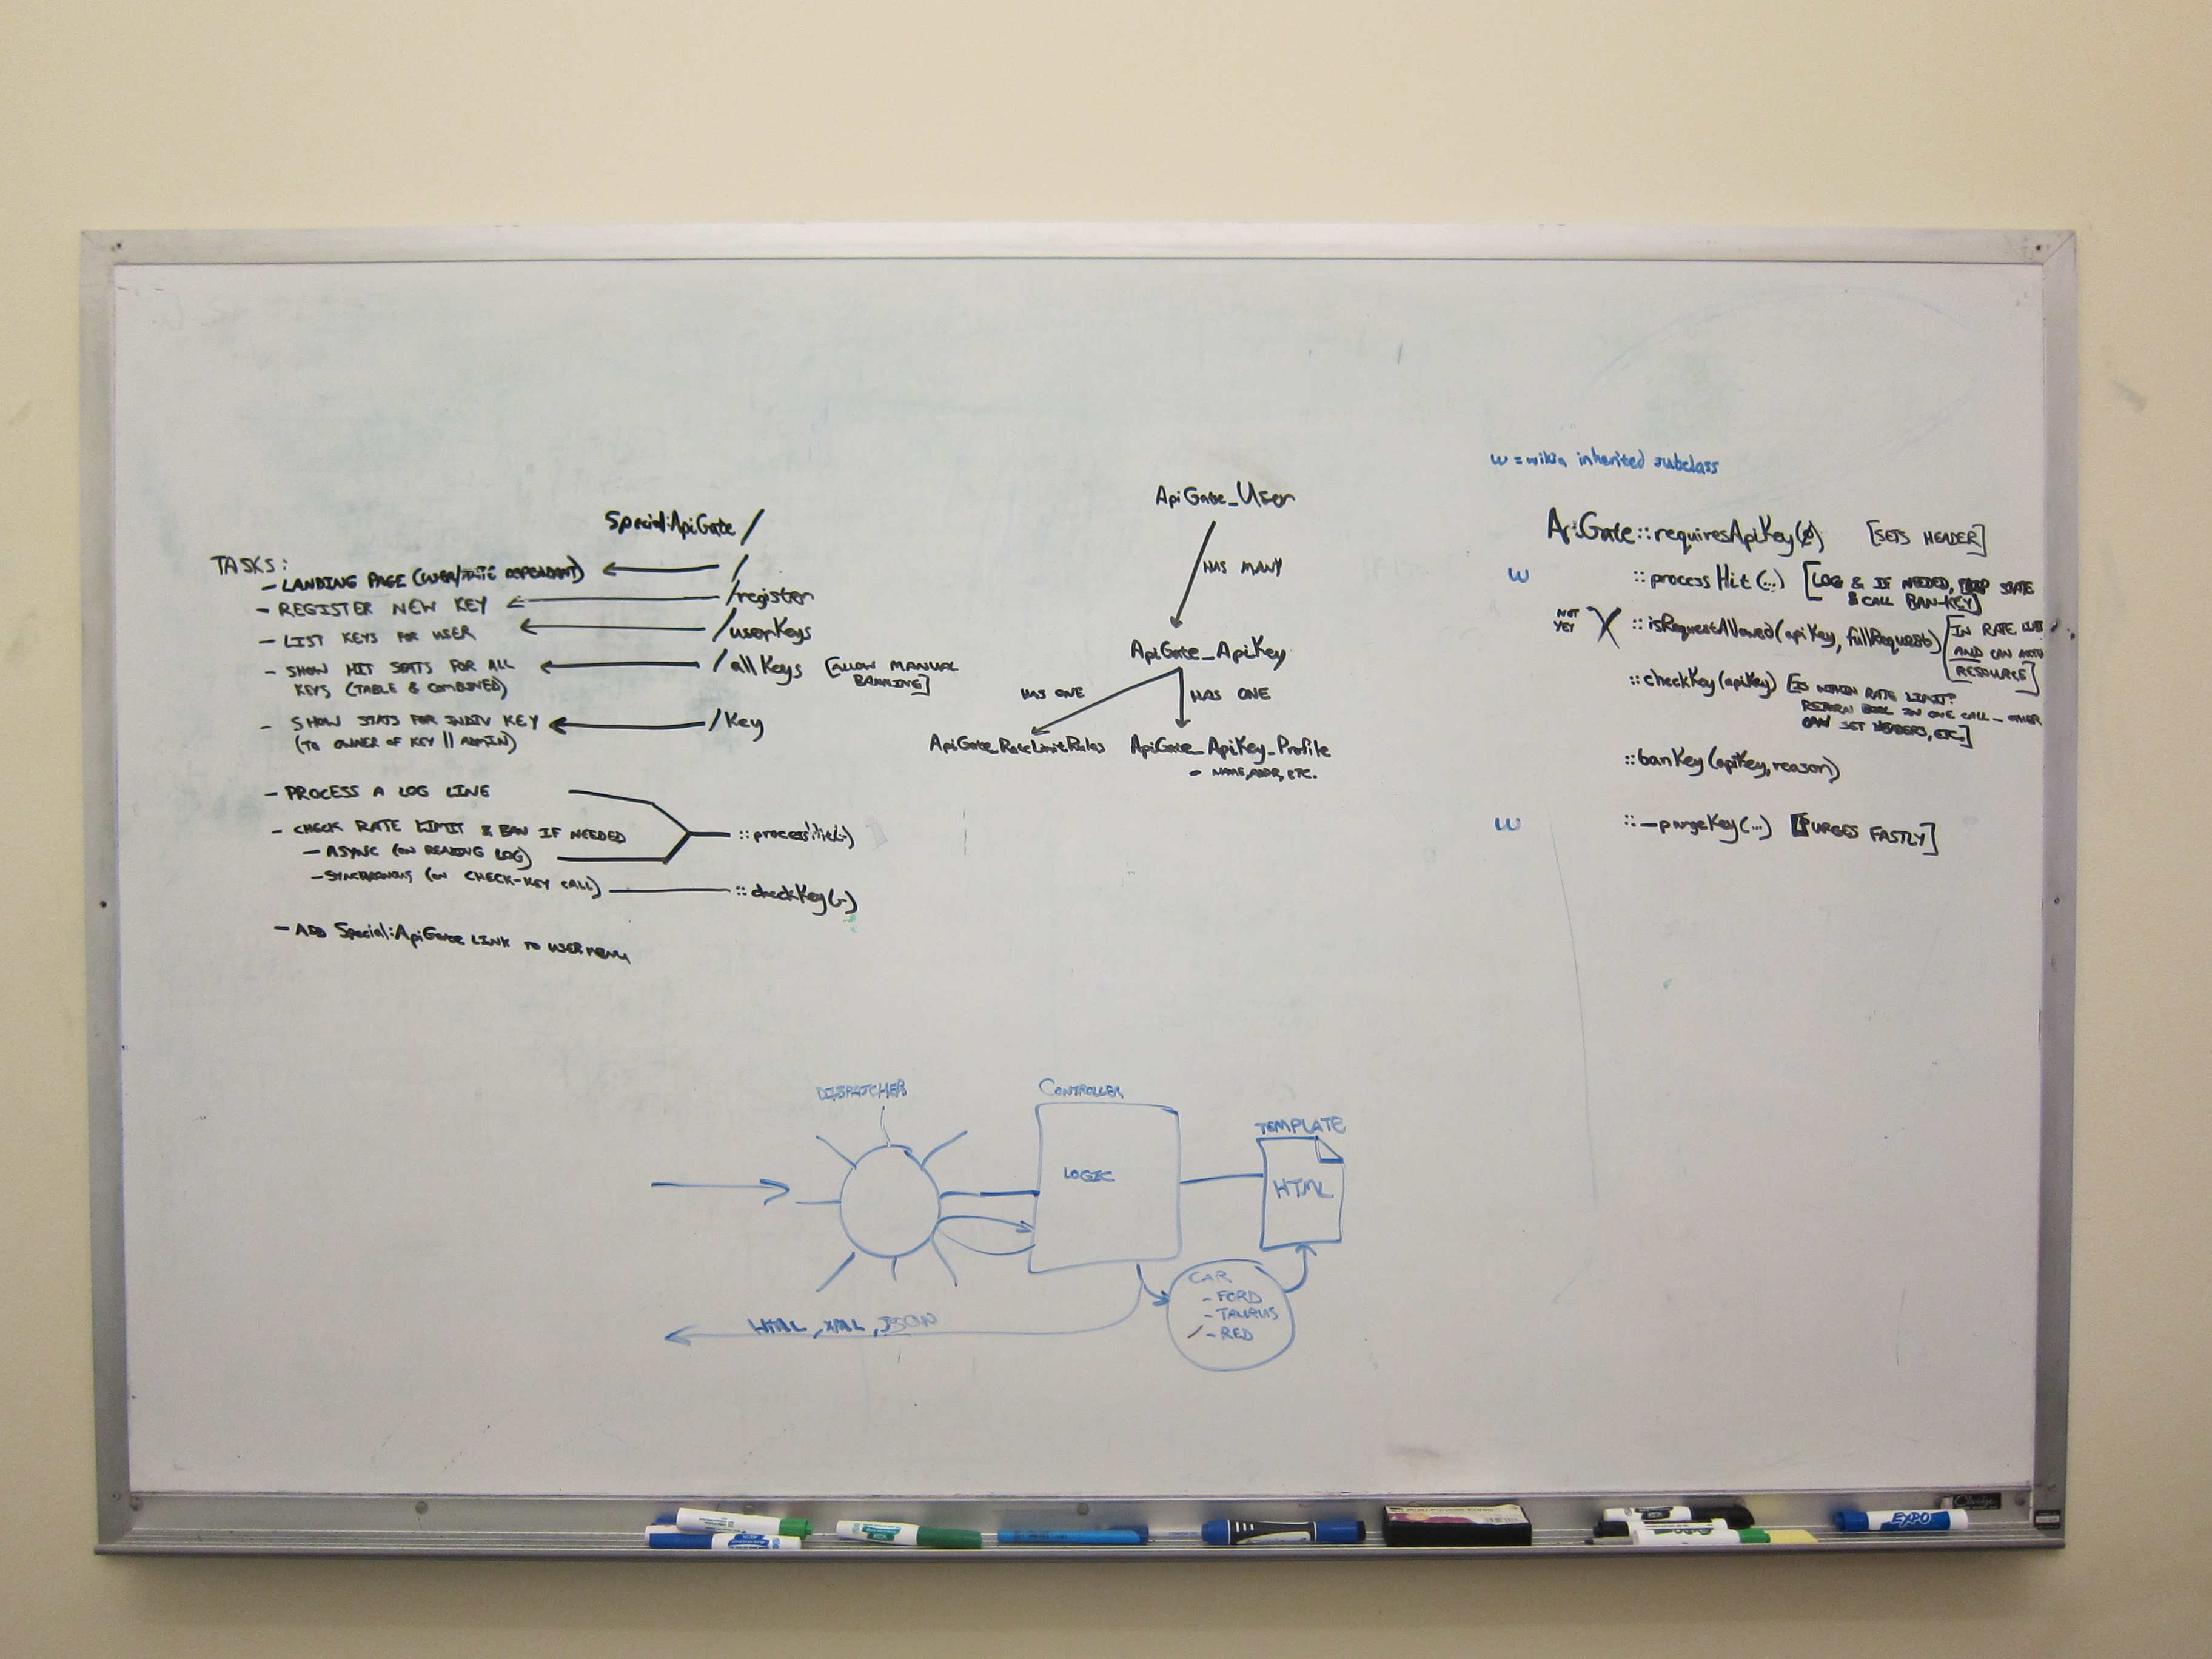 w = wikia inherited subclass
Special:ApiGate/
TASKS:
- LANDING PAGE (USER/STATE DEPENDANT)
/
- REGISTER NEW KEY
/register
- LIST KEYS FOR USER
/userKeys
- SHOW HIT STATS FOR ALL
KEYS (TABLE & COMBINED)
/allKeys
[ALLOW MANUAL
BANNING]
- SHOW STATS FOR INDIV KEY
(TO OWNER OF KEY || ADMIN)
/Key
- PROCESS A LOG LINE
- CHECK RATE LIMIT & BAN IF NEEDED
- ASYNC (ON READING LOG)
::processHit(-)
- SYNCHRONOUS (ON CHECK-KEY CALL)
::checkKey(-)
- ADD Special:ApiGate LINK TO USER MENU
ApiGate_User
HAS MANY
ApiGate_ApiKey
HAS ONE
HAS ONE
ApiGate_RateLimitRules
ApiGate_ApiKey_Profile
- NAME, ADDR, ETC.
ApiGate::requiresApiKey() [SETS HEADER]
w ::processHit(...) [LOG & IF NEEDED, STATE
& CALL BAN-KEY]
NOT
YET
X ::isRequestAllowed(apiKey, fullRequest) [IN RATE LIMIT
AND CAN
RESOURCE]
::checkKey(apiKey) [IS WITHIN RATE LIMIT?
RETURN BOOL IN ONE CALL - OTHER
CAN SET HEADERS, ETC.]
::banKey(apiKey, reason)
w ::_purgeKey(...) [PURGES FASTLY]
DISPATCHER
CONTROLLER
TEMPLATE
LOGIC
HTML
CAR
- FORD
- TAURUS
- RED
HTML, XML, JSON
EXPO